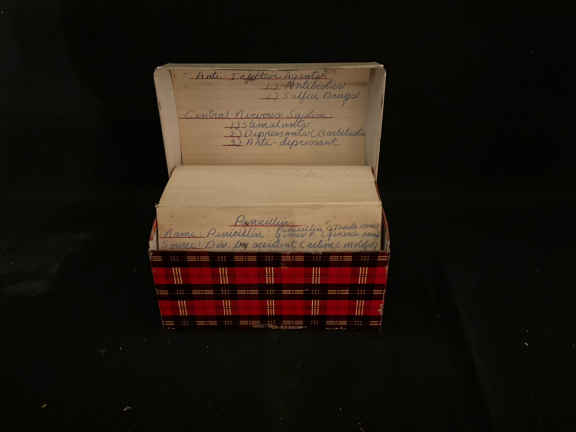 Anti-Infective Agents
1) Antibiotics
2) Sulfa Drugs
Central Nervous System
1) Stimulants
2) Depressants (Barbitu
3) Anti-depressant
Penicillin
Name: Penicillin - Penicillin
Source: Disc. by accident (active mold)